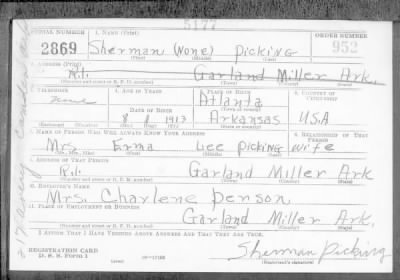 5177
SERIAL NUMBER 1. NAME (Print) ORDER NUMBER
2869 Sherman (None) Picking 952
(First) (Middle) (Last)
2. ADDRESS (Print)
R.1. Garland Miller Ark.
(Number and street or R. F. D. number) (Town) (County) (State)
3. TELEPHONE 4. AGE IN YEARS 5. PLACE OF BIRTH 6. COUNTRY OF CITIZENSHIP
None Atlanta
DATE OF BIRTH (Town or county)
8 1913 Arkansas USA
(Exchange) (Number) (Mo.) (Day) (Yr.) (State or country)
7. NAME OF PERSON WHO WILL ALWAYS KNOW YOUR ADDRESS 8. RELATIONSHIP OF THAT PERSON
Mrs. Erma Lee Picking wife
(Mr., Mrs., Miss) (First) (Middle) (Last)
9. ADDRESS OF THAT PERSON
R.1. Garland Miller Ark
(Number and street or R. F. D. number) (Town) (County) (State)
10. EMPLOYER'S NAME
Mrs. Charlene Person
11. PLACE OF EMPLOYMENT OR BUSINESS
Garland Miller Ark.
(Number and street or R. F. D. number) (Town) (County) (State)
I AFFIRM THAT I HAVE VERIFIED ABOVE ANSWERS AND THAT THEY ARE TRUE.
REGISTRATION CARD
D. S. S. Form 1
(over)
Sherman Picking
(Registrant's signature)